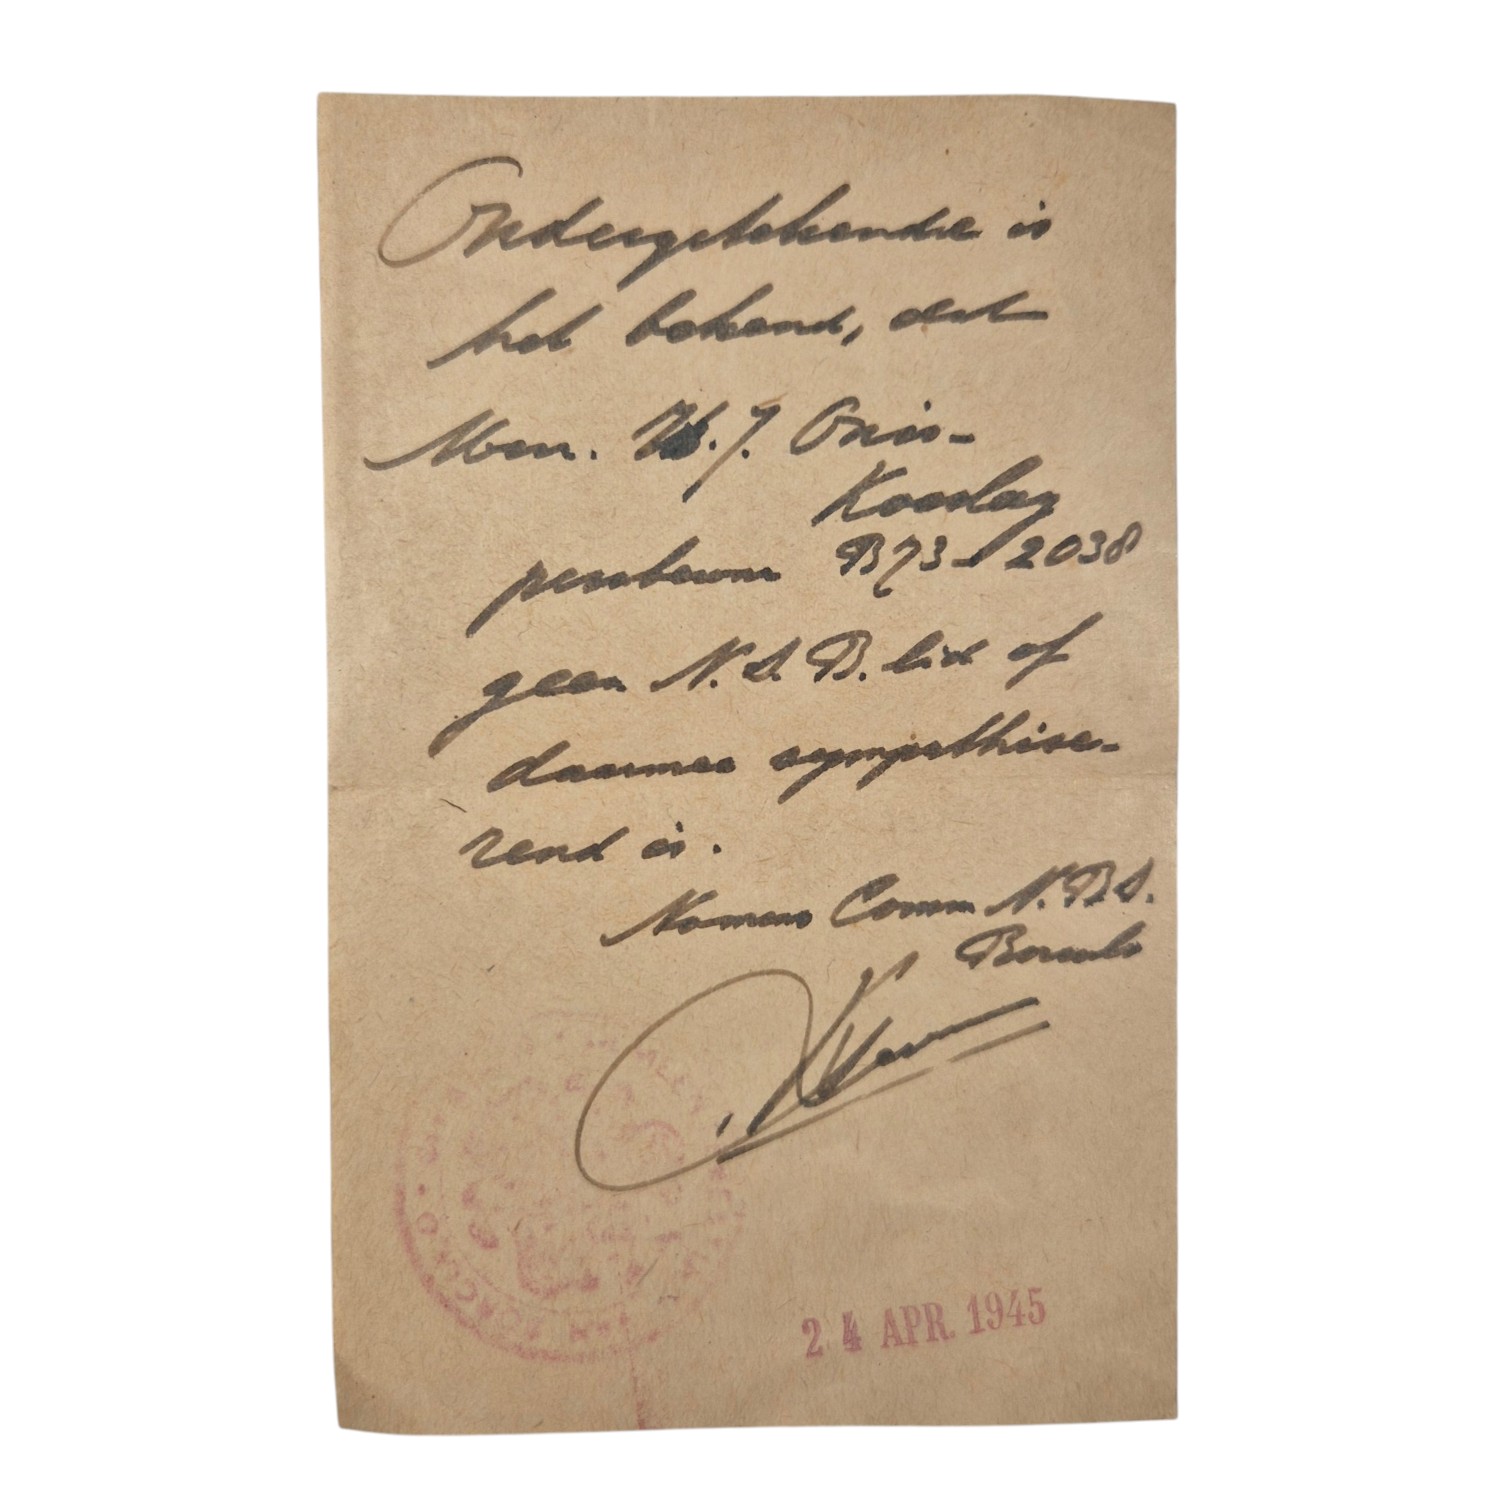 Ondergetekende is
het bekend, dat
Mevr. H. J. Onis-
Koeslag
persbewn B73 - 2038
geen N.S.B. lid of
daarmee sympathise-
rend is.
Namens Comm N.B.S.
Borculo
24 APR. 1945